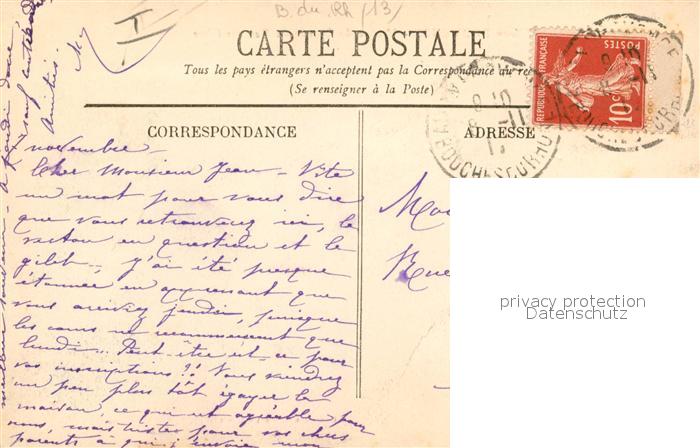 B. du Rh (13)
CARTE POSTALE
Tous les pays étrangers n'acceptent pas la Correspondance au
(Se renseigner à la Poste)
CORRESPONDANCE
ADRESSE
REPUBLIQUE FRANÇAISE
POSTES
10c
novembre -
Cher Monsieur Jean - Vite
un mot pour vous dire
que vous retrouverez ici, le
veston en question et le
gilet -, j'ai été presque
étonnée en apprenant que
vous arriviez jeudi, puisque
les cours ne recommencent que
lundi... Peut-être est-ce pour
vos inscriptions!! Vous viendrez
un peu plus tôt égayer la
maison, ce qui est agréable pour
nous, mais triste pour vos chers
parents à qui j'envoie mon
meilleur souvenir - A jeudi donc
sauf
Amitiés
Rue
privacy protection
Datenschutz